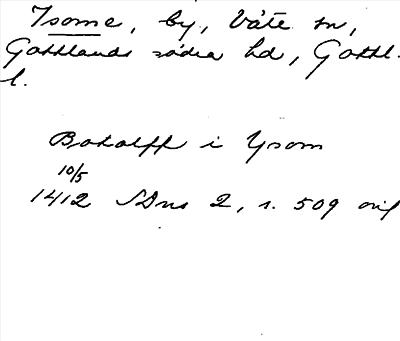 Isome, by, Väte sn,
Gotlands södra hd, Gotl.
l.
Botolff i Ysom
10/5
1412 SDns 2, s. 509 orig